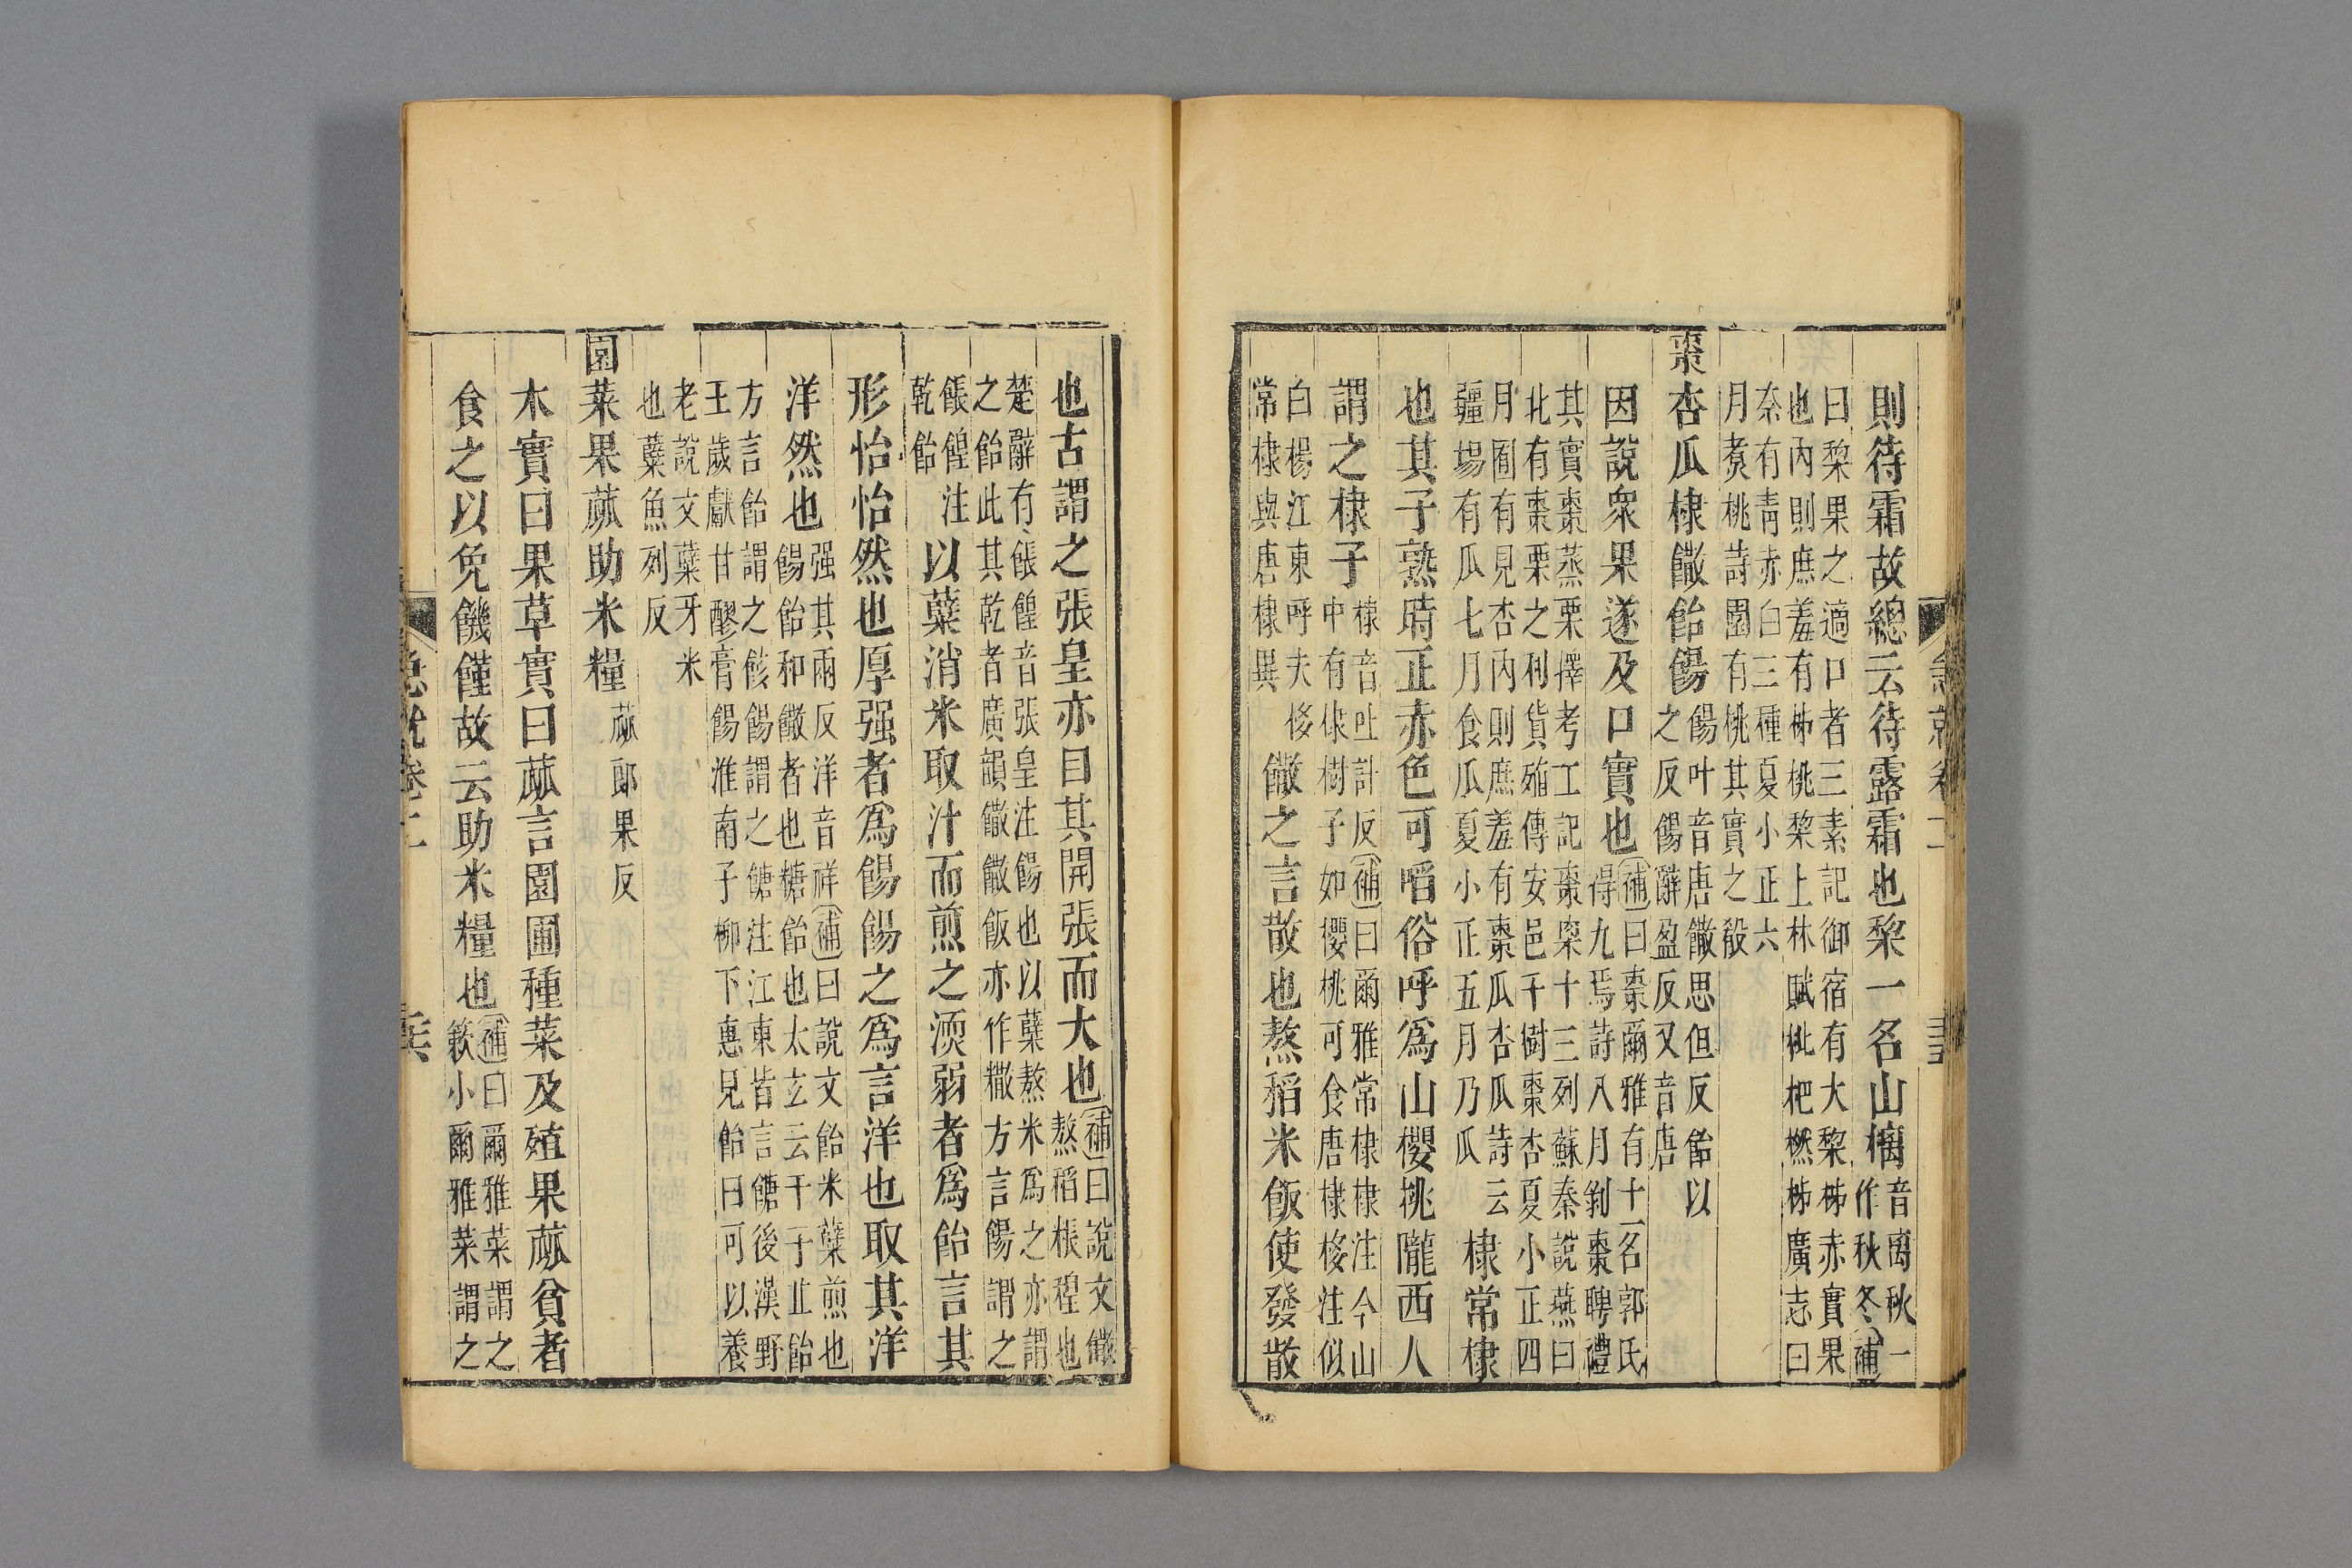 則待霜故總云待露霜也棃一名山樆音離秋一
作秋冬補
曰棃果之適口者三素記御宿有大棃柹赤實果
也內則庶羞有柹桃棃上林賦枇杷橪柹廣志曰
柰有靑赤白三種夏小正六
月煑桃詩園有桃其實之殽
棗杏瓜棣饊飴餳餳叶音唐饊思但反飴以
之反餳辭盈反又音唐
因說衆果遂及口實也補曰棗爾雅有十一名郭氏
得九焉詩八月剝棗聘禮
其實棗蒸栗擇考工記棗㮚十三列蘇秦說燕曰
北有棗栗之利貨殖傳安邑千樹棗杏夏小正四
月囿有見杏內則庶羞有棗瓜杏瓜詩云
疆埸有瓜七月食瓜夏小正五月乃瓜
棣常棣
也其子熟時正赤色可啗俗呼爲山櫻桃隴西人
謂之棣子棣音吐計反補曰爾雅常棣棣注今山
中有棣樹子如櫻桃可食唐棣栘注似
白楊江東呼夫栘
常棣與唐棣異
饊之言散也熬稻米飯使發散
也古謂之張皇亦曰其開張而大也補曰說文饊
熬稻粻程也
楚辭有餦餭音張皇注餳也以糱熬米爲之亦謂
之飴此其乾者廣韻饊饊飯亦作糤方言餳謂之
餦餭注
乾飴
以糱消米取汁而煎之渜弱者爲飴言其
形怡怡然也厚强者爲餳餳之爲言洋也取其洋
洋然也强其兩反洋音祥補曰說文飴米糱煎也
餳飴和饊者也糖飴也太玄云干于丠飴
方言飴謂之䬵餳謂之餹注江東皆言餹後漢野
王歲獻甘醪膏餳淮南子柳下惠見飴曰可以養
老說文糱牙米
也糱魚列反
園菜果蓏助米糧蓏郞果反
木實曰果草實曰蓏言園圃種菜及殖果蓏貧者
食之以免饑僅故云助米糧也補曰爾雅菜謂之
蔌小爾雅菜謂之